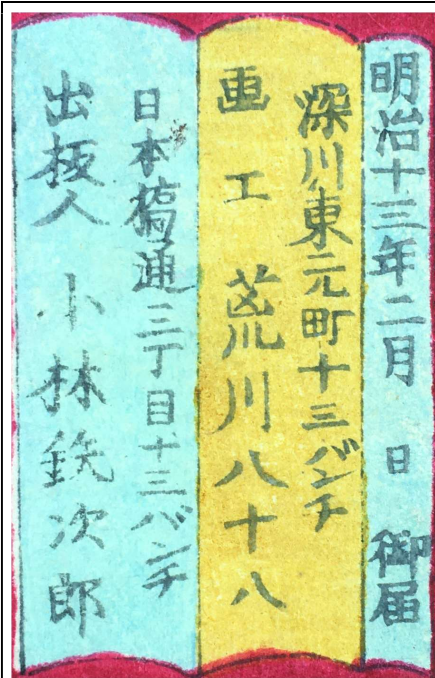 明治十三年二月 日 御届
深川東元町十三バンチ
画工 荒川八十八
日本橋通三丁目十三バンチ
出板人 小林鉄次郎